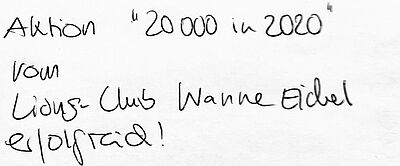 Aktion "20 000 in 2020"
vom
Lions-Club Wanne Eickel
erfolgreich!